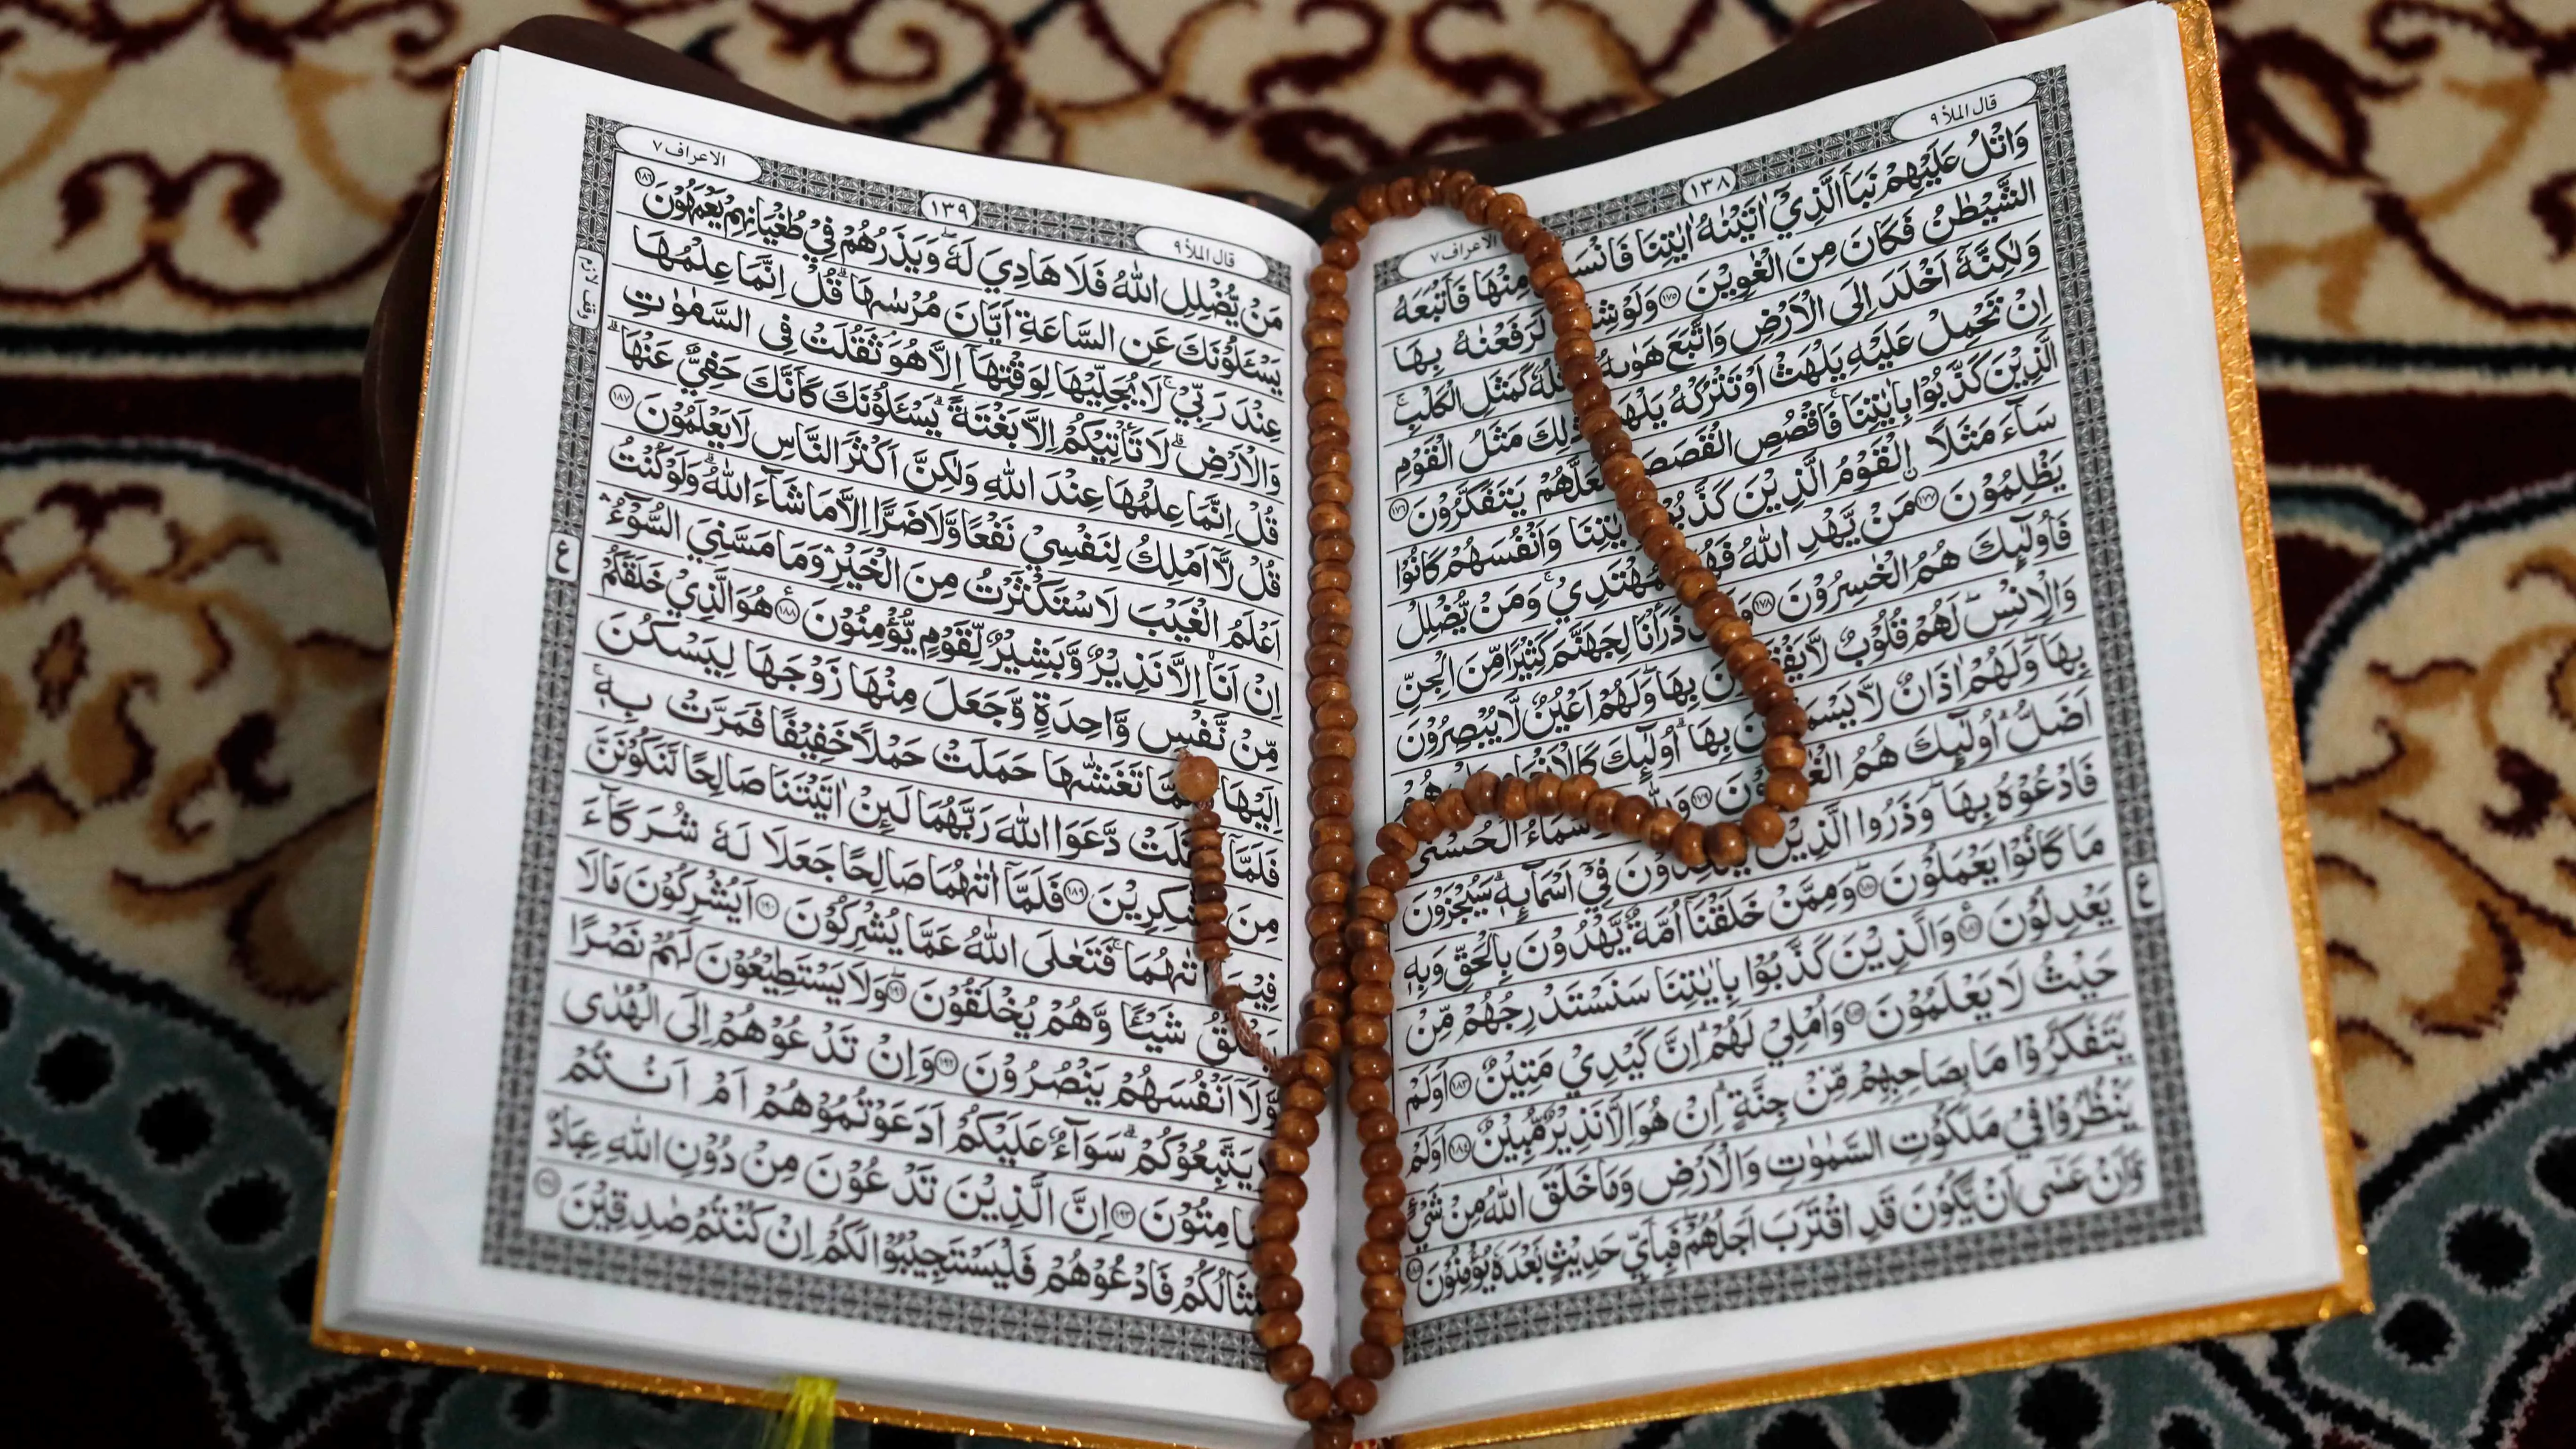 قال الملأ ٩
١٣٨
الاعراف ٧
وَاتْلُ عَلَيْهِمْ نَبَاَ الَّذِيْٓ اٰتَيْنٰهُ اٰيٰتِنَا مِنْهَا فَاَتْبَعَهُ
الشَّيْطٰنُ فَكَانَ مِنَ الْغٰوِيْنَ ١٧٥ لَرَفَعْنٰهُ بِهَا
وَلٰكِنَّهٗٓ اَخْلَدَ اِلَى الْاَرْضِ وَاتَّبَعَ هَوٰىهُ كَمَثَلِ الْكَلْبِ ۚ
اِنْ تَحْمِلْ عَلَيْهِ يَلْهَثْ اَوْ تَتْرُكْهُ مَثَلُ الْقَوْمِ
الَّذِيْنَ كَذَّبُوْا بِاٰيٰتِنَا ۚ فَاقْصُصِ يَتَفَكَّرُوْنَ ١٧٦
سَآءَ مَثَلًا اۨلْقَوْمُ الَّذِيْنَ وَاَنْفُسَهُمْ كَانُوْا
يَظْلِمُوْنَ ١٧٧ مَنْ يَّهْدِ اللّٰهُ وَمَنْ يُّضْلِلْ
فَاُولٰٓئِكَ هُمُ الْخٰسِرُوْنَ ١٧٨ ذَرَاْنَا لِجَهَنَّمَ كَثِيْرًا مِّنَ الْجِنِّ
وَالْاِنْسِ ۖ لَهُمْ قُلُوْبٌ لَّا بِهَا ۖ وَلَهُمْ اَعْيُنٌ لَّا يُبْصِرُوْنَ
بِهَا ۖ وَلَهُمْ اٰذَانٌ لَّا بِهَا ۗ اُولٰٓئِكَ
اَضَلُّ ۗ اُولٰٓئِكَ هُمُ ١٧٩ الْحُسْنٰى
فَادْعُوْهُ بِهَا ۖ وَذَرُوا الَّذِيْنَ فِيْٓ اَسْمَآئِهٖ ۗ سَيُجْزَوْنَ
مَا كَانُوْا يَعْمَلُوْنَ ١٨٠ وَمِمَّنْ خَلَقْنَآ اُمَّةٌ يَّهْدُوْنَ بِالْحَقِّ وَبِهٖ
يَعْدِلُوْنَ ١٨١ وَالَّذِيْنَ كَذَّبُوْا بِاٰيٰتِنَا سَنَسْتَدْرِجُهُمْ مِّنْ
حَيْثُ لَا يَعْلَمُوْنَ ١٨٢ وَاُمْلِيْ لَهُمْ ۗ اِنَّ كَيْدِيْ مَتِيْنٌ ١٨٣ اَوَلَمْ
يَتَفَكَّرُوْا مَا بِصَاحِبِهِمْ مِّنْ جِنَّةٍ ۗ اِنْ هُوَ اِلَّا نَذِيْرٌ مُّبِيْنٌ ١٨٤ اَوَلَمْ
يَنْظُرُوْا فِيْ مَلَكُوْتِ السَّمٰوٰتِ وَالْاَرْضِ وَمَا خَلَقَ اللّٰهُ مِنْ شَيْءٍ
وَّاَنْ عَسٰٓى اَنْ يَّكُوْنَ قَدِ اقْتَرَبَ اَجَلُهُمْ ۖ فَبِاَيِّ حَدِيْثٍۭ بَعْدَهٗ يُؤْمِنُوْنَ ١٨٥
ع
قال الملأ ٩
١٣٩
الاعراف ٧
مَنْ يُّضْلِلِ اللّٰهُ فَلَا هَادِيَ لَهٗ ۖ وَيَذَرُهُمْ فِيْ طُغْيَانِهِمْ يَعْمَهُوْنَ ١٨٦
يَسْـَٔلُوْنَكَ عَنِ السَّاعَةِ اَيَّانَ مُرْسٰىهَا ۗ قُلْ اِنَّمَا عِلْمُهَا
عِنْدَ رَبِّيْ ۚ لَا يُجَلِّيْهَا لِوَقْتِهَآ اِلَّا هُوَ ۘ ثَقُلَتْ فِى السَّمٰوٰتِ
وَالْاَرْضِ ۗ لَا تَأْتِيْكُمْ اِلَّا بَغْتَةً ۗ يَسْـَٔلُوْنَكَ كَاَنَّكَ حَفِيٌّ عَنْهَا ۗ
قُلْ اِنَّمَا عِلْمُهَا عِنْدَ اللّٰهِ وَلٰكِنَّ اَكْثَرَ النَّاسِ لَا يَعْلَمُوْنَ ١٨٧
قُلْ لَّآ اَمْلِكُ لِنَفْسِيْ نَفْعًا وَّلَا ضَرًّا اِلَّا مَا شَآءَ اللّٰهُ ۗ وَلَوْ كُنْتُ
اَعْلَمُ الْغَيْبَ لَاسْتَكْثَرْتُ مِنَ الْخَيْرِ ۛ وَمَا مَسَّنِيَ السُّوْٓءُ ۛ
اِنْ اَنَا۠ اِلَّا نَذِيْرٌ وَّبَشِيْرٌ لِّقَوْمٍ يُّؤْمِنُوْنَ ١٨٨ هُوَ الَّذِيْ خَلَقَكُمْ
مِّنْ نَّفْسٍ وَّاحِدَةٍ وَّجَعَلَ مِنْهَا زَوْجَهَا لِيَسْكُنَ
اِلَيْهَا تَغَشّٰىهَا حَمَلَتْ حَمْلًا خَفِيْفًا فَمَرَّتْ بِهٖ ۚ
فَلَمَّآ دَّعَوَا اللّٰهَ رَبَّهُمَا لَئِنْ اٰتَيْتَنَا صَالِحًا لَّنَكُوْنَنَّ
مِنَ ١٨٩ فَلَمَّآ اٰتٰىهُمَا صَالِحًا جَعَلَا لَهٗ شُرَكَآءَ
فِيْمَآ فَتَعٰلَى اللّٰهُ عَمَّا يُشْرِكُوْنَ ١٩٠ اَيُشْرِكُوْنَ مَا لَا
شَيْـًٔا وَّهُمْ يُخْلَقُوْنَ ١٩١ وَلَا يَسْتَطِيْعُوْنَ لَهُمْ نَصْرًا
وَّلَآ اَنْفُسَهُمْ يَنْصُرُوْنَ ١٩٢ وَاِنْ تَدْعُوْهُمْ اِلَى الْهُدٰى
يَتَّبِعُوْكُمْ ۗ سَوَآءٌ عَلَيْكُمْ اَدَعَوْتُمُوْهُمْ اَمْ اَنْتُمْ
١٩٣ اِنَّ الَّذِيْنَ تَدْعُوْنَ مِنْ دُوْنِ اللّٰهِ عِبَادٌ
فَادْعُوْهُمْ فَلْيَسْتَجِيْبُوْا لَكُمْ اِنْ كُنْتُمْ صٰدِقِيْنَ ١٩٤
وقف لازم
ع